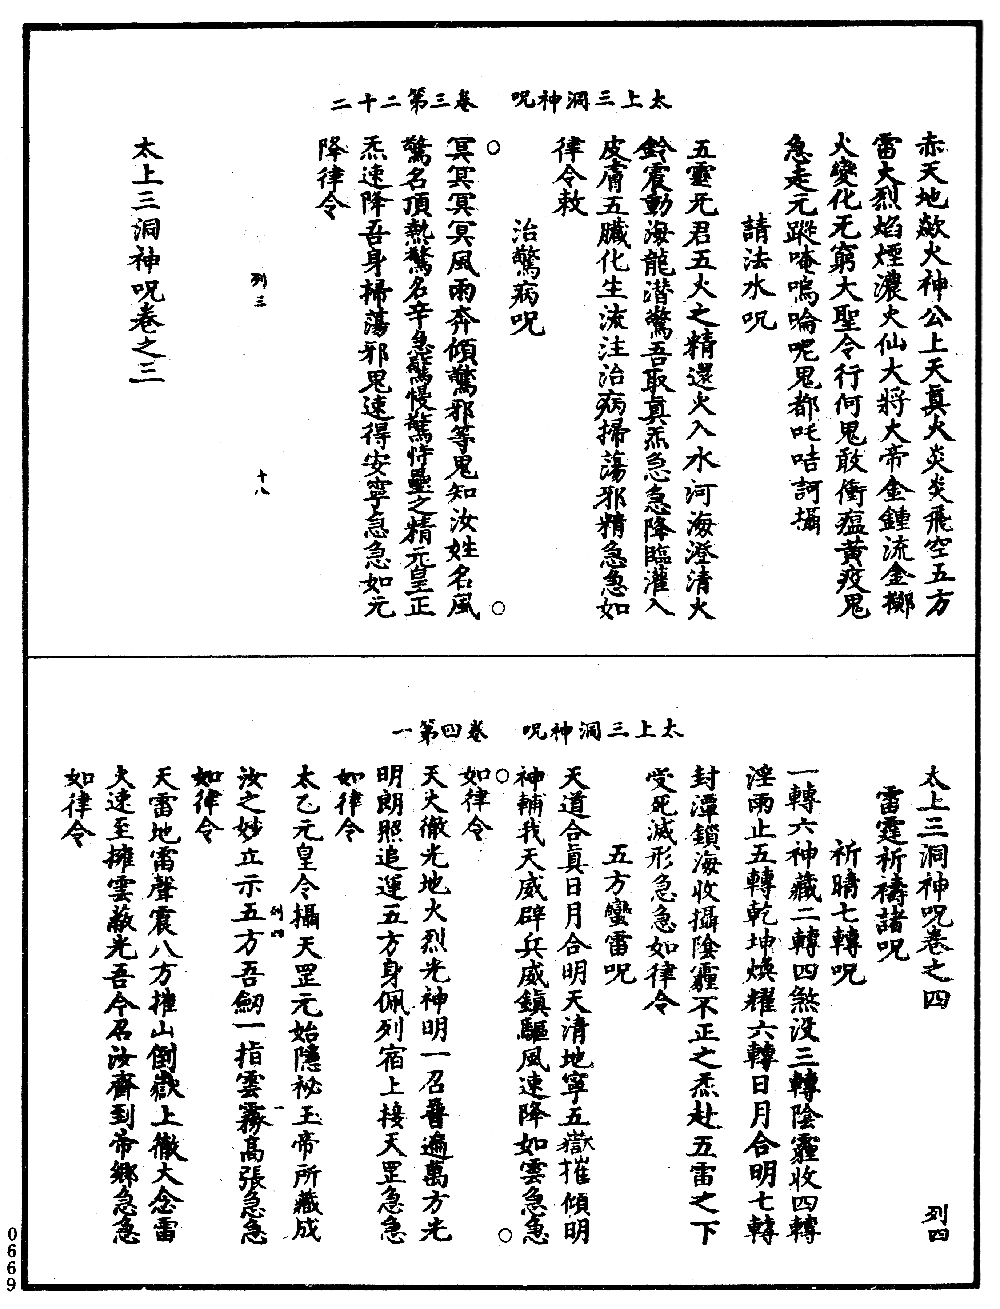 太上三洞神呪　卷三第二十二
赤天地歘火神公上天真火炎炎飛空五方
雷大烈焰煙濃火仙大將大帝金鍾流金擲
火變化无窮大聖令行何鬼敢衝瘟黃疫鬼
急走元蹤唵嗚㖮呢鬼都吒咭訶攝
請法水呪
五靈死君五火之精還火入水河海澄清火
鈴震動海龍潛驚吾取真炁急急降臨灌入
皮膚五臟化生流注治病掃蕩邪精急急如
律令敕
治驚病呪
冥冥冥冥風雨奔傾驚邪等鬼知汝姓名風
驚名頂熱驚名辛急驚慢驚恃壘之精元皇正
炁速降吾身掃蕩邪鬼速得安寧急急如元
降律令
列三
十八
太上三洞神呪卷之三
太上三洞神呪　卷四第一
太上三洞神呪卷之四　列四
雷霆祈禱諸呪
祈晴七轉呪
一轉六神藏二轉四煞沒三轉陰霾收四轉
淫雨止五轉乾坤煥耀六轉日月合明七轉
封潭鎖海收攝陰霾不正之炁赴五雷之下
受死滅形急急如律令
五方蠻雷呪
天道合真日月合明天清地寧五嶽摧傾明
神輔我天威辟兵威鎮驅風速降如雲急急
如律令
天火徹光地火烈光神明一召普遍萬方光
明朗照追運五方身佩列宿上接天罡急急
如律令
太乙元皇令攝天罡元始隱祕玉帝所藏成
列四
一
汝之妙立示五方吾劒一指雲霧高張急急
如律令
天雷地雷聲震八方摧山倒嶽上徹大念雷
火速至擁雲蔽光吾今召汝齊到帝鄉急急
如律令
0669